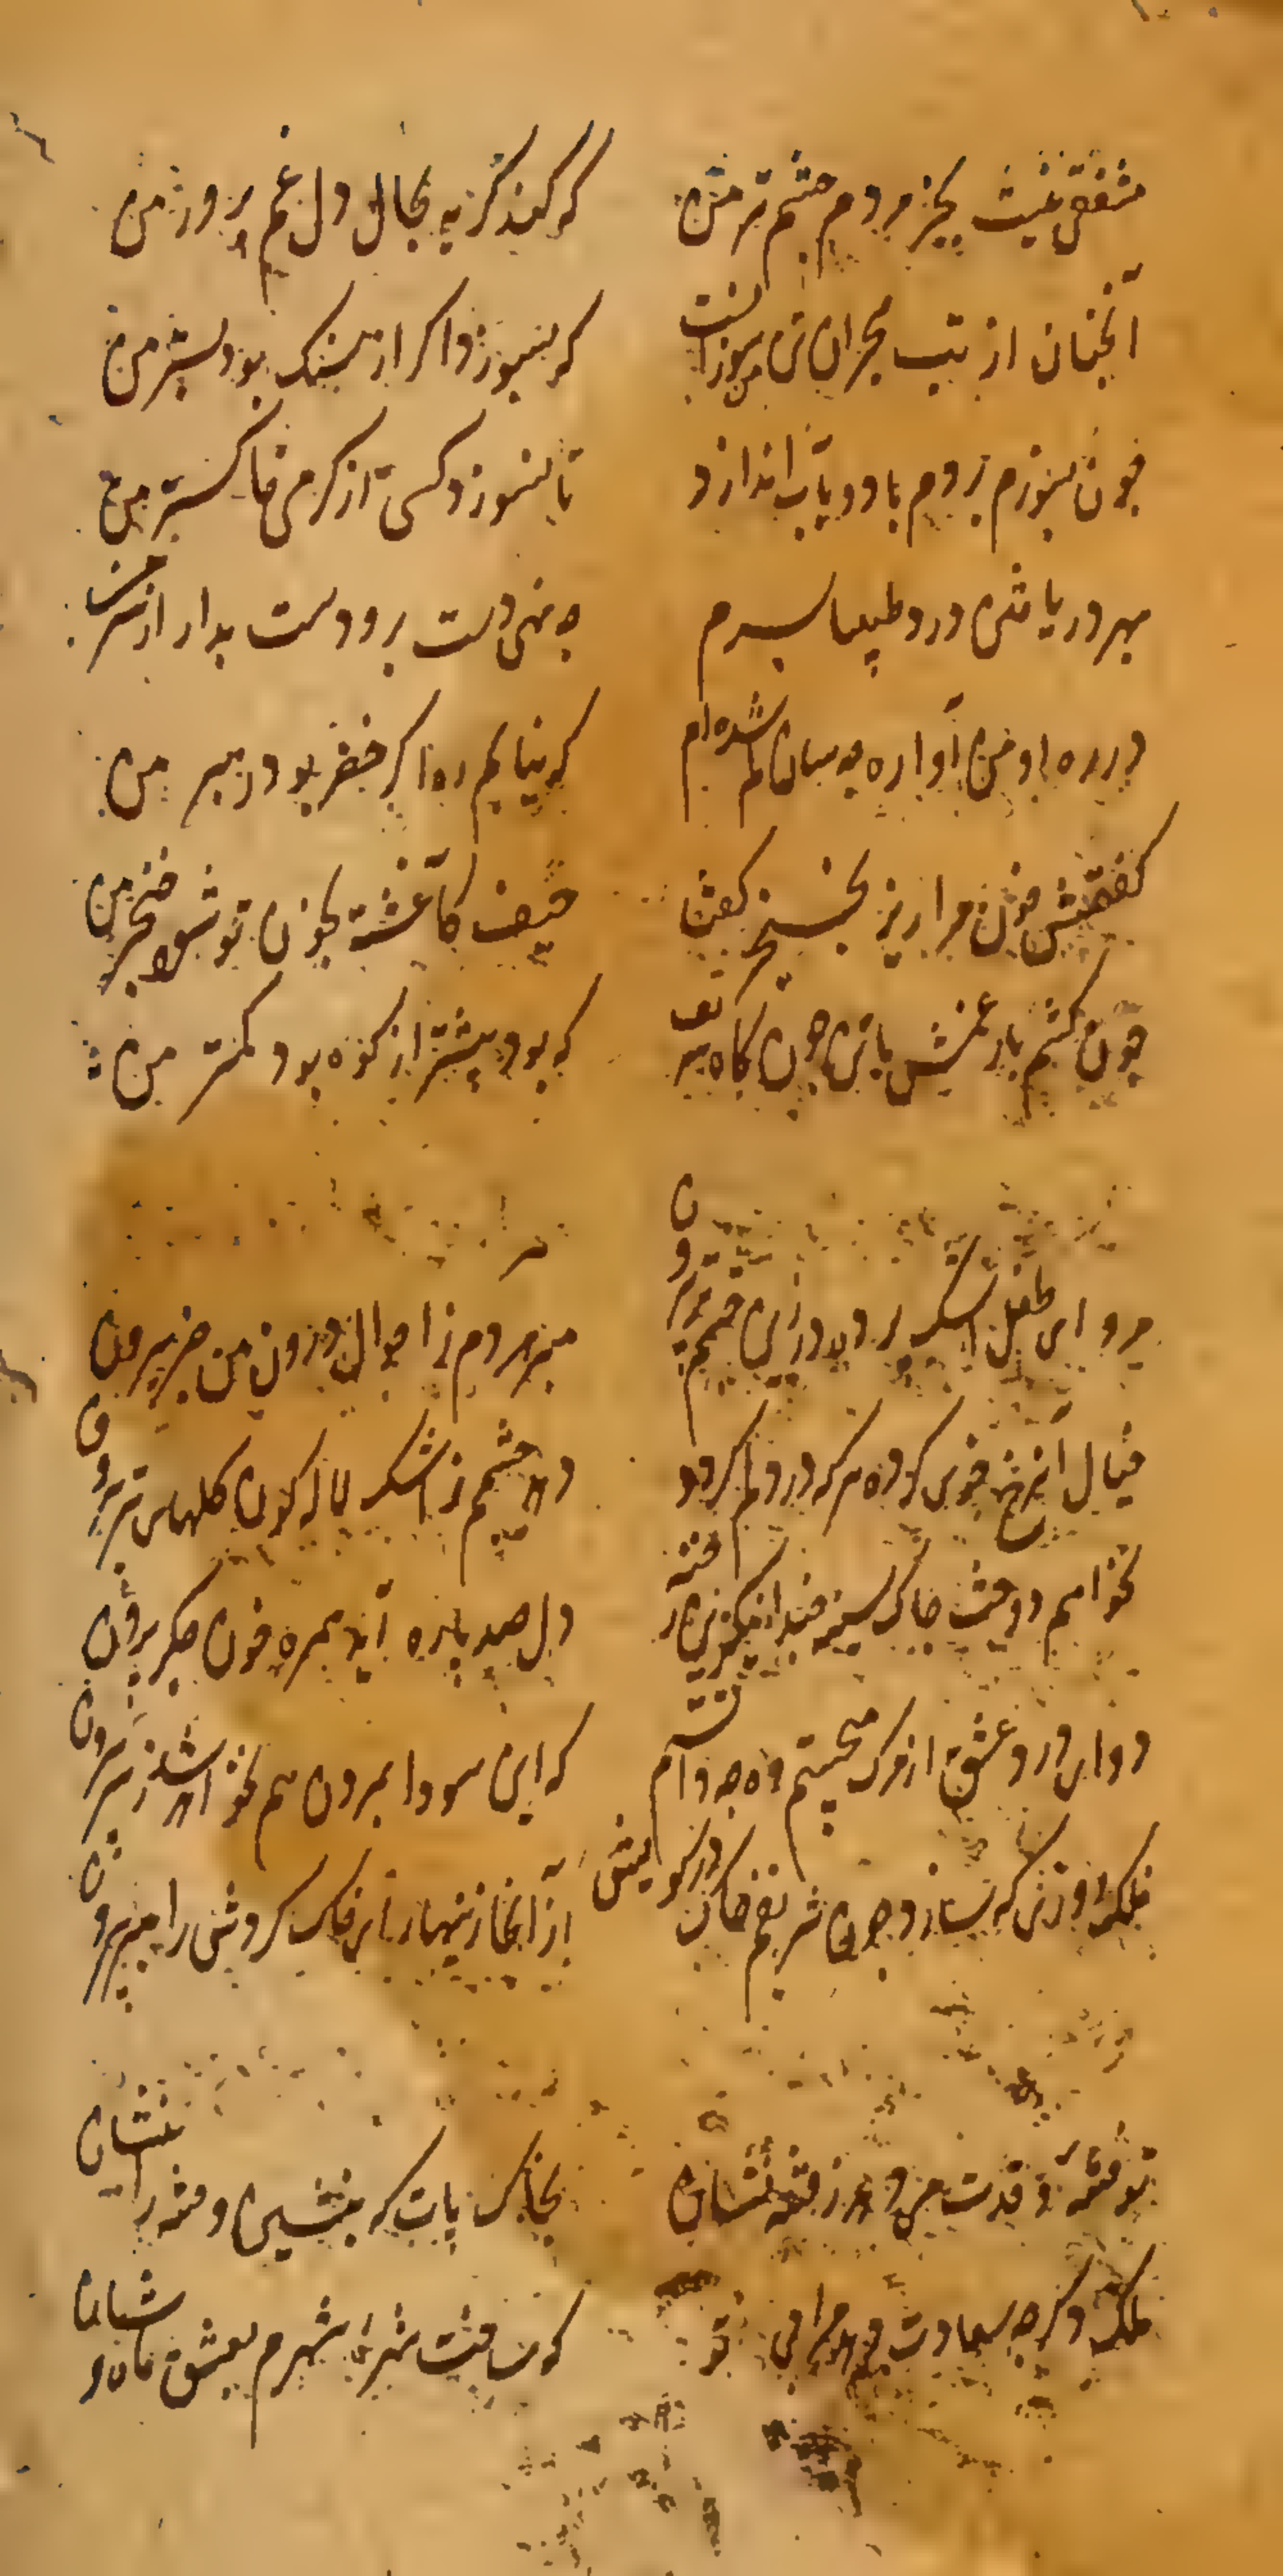 مشفقی نیست بجز مردم چشم تر من
که کند گریه بحال دل غم پرور من
آنچنان از تب هجران تن من سوزانست
که بسوزد اکر از سنک بود بستر من
چون بسوزم بروم باد و بآب اندازد
تا نسوزد کسی از کرمی خاکستر من
بهر در یا شدی درد طبیبا بسرم
چه نهی دست برو دست بدار از سر من
در ره او من آواره چه سان کم شده ام
که نیابم ره اکر خضر بود رهبر من
کفتمش خون مرا ریز بخنجر کفتا
حیف کاغشته بخون تو شود خنجر من
چون کشم بار غمش با تن چون کاه
که بود بیشتر از کوه بود کمتر من
مرو ای طفل اشک از دیده چشم تر برون
مبر مردم ز احوال درون من خبر بیرون
خیال آن رخ خوی کرده هر که در دلم کردد
دهد چشمم ز اشک لاله کون کلهای تر بیرون
نخواهم دوخت چاک سینه چند
دل صد پاره آید همره خون جکر بیرون
دوای درد عشق از مرک می جستم ندانستم
که این سودا بمردن هم نخواهد شد ز سر بیرون
فلک روزی که سازد چون شریفم خاک در کویش
از آنجا زینهار ای خاک کردش را مبر بیرون
تو فتنه و قدت می دهد ز فتنه نشان
بخاک پات که بنشین و فتنه را بنشان
ملک دکر چه سعادت مرا تو
که ساخت شهره شهرم بعشق ماه وشان